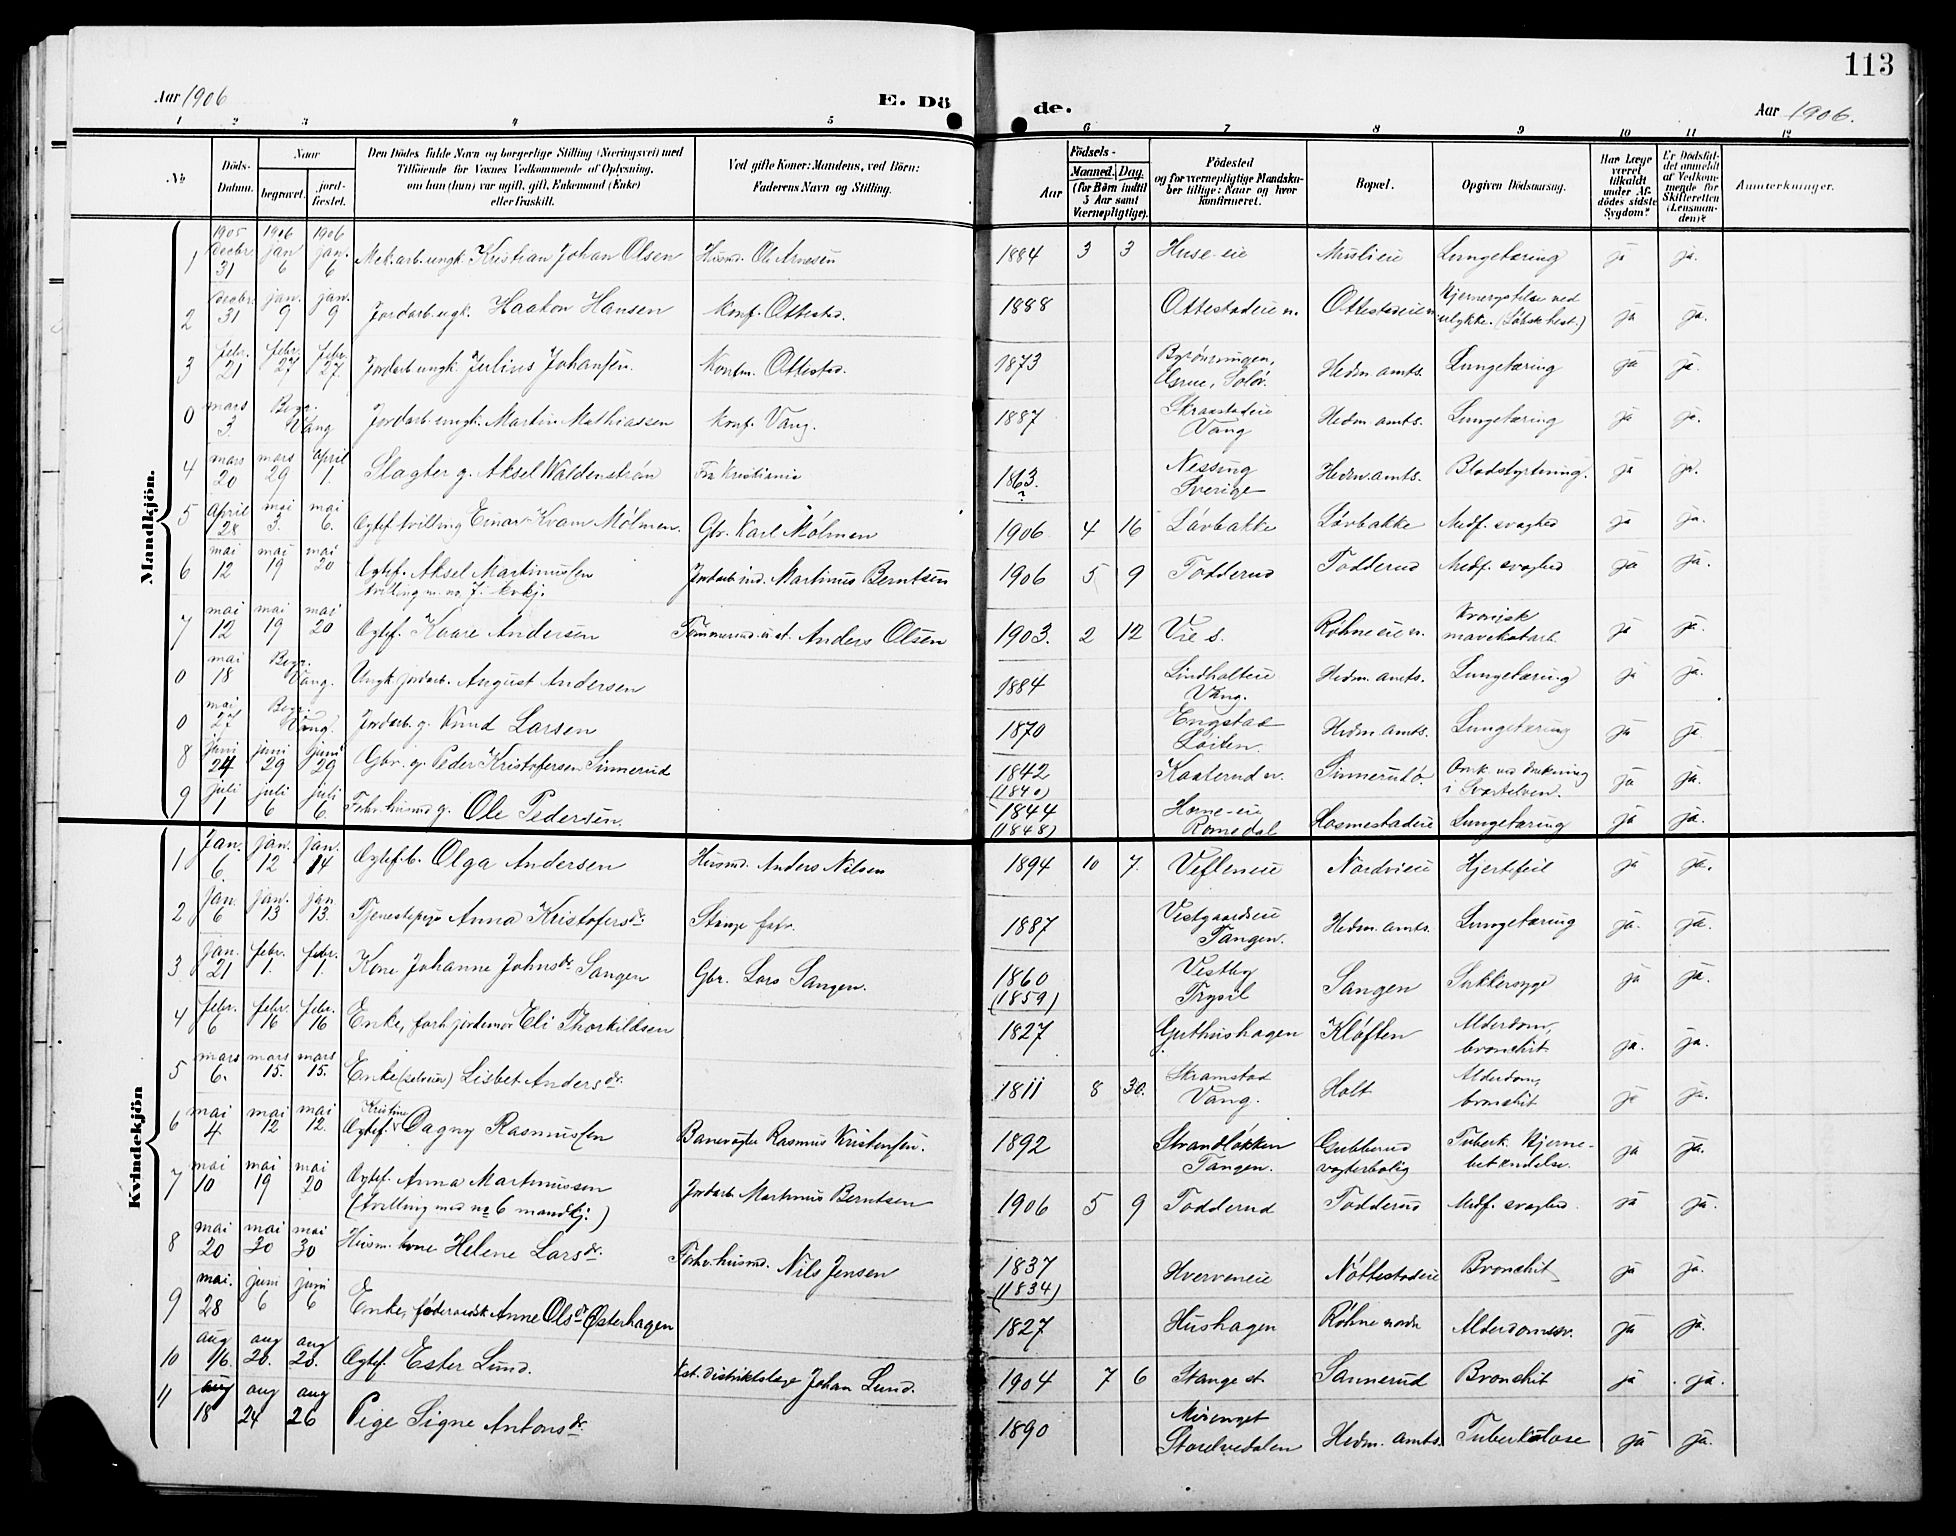 113
Aar 1906
E. Dö
de.
Aar 1906.
1 2 3 4 5 6 7 8 9 10 11 12
No
Döds-Datum.
Naar
begravet.
jord-fæstet.
Den Dödes fulde Navn og borgerlige Stilling (Næringsvei) med
Tilföiende for Voxnes Vedkommende af Oplysning,
om han (hun) var ugift, gift, Enkemand (Enke)
eller fraskilt.
Ved gifte Koner: Mandens, ved Börn:
Faderens Navn og Stilling.
Födsels-
Aar
Maaned. Dag.
(for Børn indtil
5 Aar samt
Værnepligtige).
Födested
og for værnepligtige Mandska-
ber tillige: Naar og hvor
konfirmeret.
Bopæl.
Opgiven Dödsaarsag.
Har Læge
været
tilkaldt
under Af-
dödes sidste
Sygdom?
Er Dödsfal-
det anmeldt
af Vedkom-
mende for
Skifteretten
(Lensman-
den)?
Anmærkninger.
Mandkjön.
1 1905 decbr 31 1906 jan 6 1906 jan. 6 Mek.arb. ungk. Kristian Johan Olsen Husmd. Ole Arnesen 1884 3 3 Huse-eie Muslieie Lungetæring ja ja.
2 decbr. 31 jan. 9 jan. 9 Jordarb. ugk. Haakon Hansen Konf. Ottestad. 1888 Ottestadeie n. Ottestadeie n. Hjernerystelse ved ulykke. (Løbsk hest.) ja ja.
3 febr. 21 febr. 27 febr. 27. Jordarb ungk. Julius Johansen. Konfm. Ottestad. 1873 Solør. Hedm. amts. Lungetæring ja ja.
0 mars 3. Begr. Vang Jordarb. ungk. Martin Mathiassen Konf. Vang. 1887 Skraastadeie Vang Hedm. amts. Lungetæring ja ja.
4 mars 20 mars 29 april 1. Slagter g. Aksel Waldenstrøm Fra Kristiania 1863. ? Nessing Sverige Hedm. amts. Blodstyrtning. ja ja.
5 April 28 mai 3. mai 6. Egtef. tvilling Einar Kvam Mølmen. Gbr. Karl Mølmen 1906 4 16 Løvbakke Løvbakke Medf. svaghed ja ja.
6 mai 12 mai 19 mai 20 Egtef. Aksel Martinussen tvilling m. no. 7. kvkj. Jordarb. ind. Martinus Berntsen 1906 5 9 Todderud Todderud Medf. svaghed ja ja.
7 mai 12 mai 19 mai 20 Egtef. Kaare Andersen Anders Olsen 1903. 2 12 Vie s. Røhne eie n. Kronisk mavekatarh. ja ja.
0 mai 18 Begr. Vang. Ungk. jordarb. August Andersen 1884 Lindholteie Vang. Hedm. amts. Lungetæring ja ja.
0 mai 27 Begr. Vang. Jordarb. g. Knud Larsen 1870 Engstad Løiten. Hedm. amts. Lungetæring ja ja
8 juni 24 juni 29 juni 29 Gbr. g. Peder Kristofersen Sinnerud 1842 (1840) Kaaterud n. Sinnerud ø. Omk. ved drukning i Svartelven. ja ja.
9 juli 1 juli 6 juli 6. Forhv. husmd g. Ole Pedersen. 1844 (1848) Horne-eie Romedal Hosmestadeie Lungetæring ja ja.
Kvindekjön
1 Jan. 6. jan. 12 jan. 14 Egtef. b. Olga Andersen Husmd. Anders Nilsen 1894 10 7. Vefleneie Nordvieie Hjertefeil ja ja.
2 jan. 6 jan. 13 jan 13. Tjenestepige Anna Kristofersdr. Stange fatv. 1887 Vestgaardseie Tangen. Hedm. amts. Lungetæring ja. ja.
3 jan. 21 febr. 1. febr. 1. Kone Johanne Johnsdr. Sangen Gbr. Lars Sangen. 1860 (1859) Vestby Trysil Sangen Sukkersyge ja ja.
4 febr. 6 febr. 16 febr. 16 Enke, forh. jordemor Eli Thorkildsen 1827 Gjuthushagen Kløften Alderdom, bronchit ja. ja.
5 mars 6. mars 15. mars 15. Enke (selveier) Lisbet Andersdr. 1811 8 30. Skramstad Vang. Holt Alderdom, bronchit ja ja.
6 mai 4. mai 12 mai 12. Egtef. Kristine Dagny Rasmussen Banevogter Rasmus Kristensen. 1892 Strandløkken Tangen. Gubberud vogterbolig Tuberk. Hjerne-betændelse. ja ja.
7 mai 10 mai 19 mai 20 Egtef. Anna Martinussen (tvilling med no 6 mandkj.) Jordarb. Martinus Berntsen 1906 5 9 Todderud Todderud Medf. svaghed. ja ja.
8 mai 20 mai 30 mai 30 Husm. kone Helene Larsdr. Forhv. husmd. Nils Jensen 1837 (1834) Hverveneie Nøttestadeie Bronchit ja ja.
9 mai. 28 juni 6 juni 6 Enke, føderaadsk Anne Olsdr Østerhagen 1827 Hushagen Røhne nordre Alderdomssv. ja ja.
10 aug 16. aug 20. aug 20. Egtef. Ester Lund. Kst. distriktslæge Johan Lund. 1904 7 6 Stange st. Sannerud Bronchit ja ja.
11 aug 18 aug 24 aug 26 Pige Signe Antonsdr. 1890 Storelvedalen Hedm. amts. Tuberkulose ja ja.